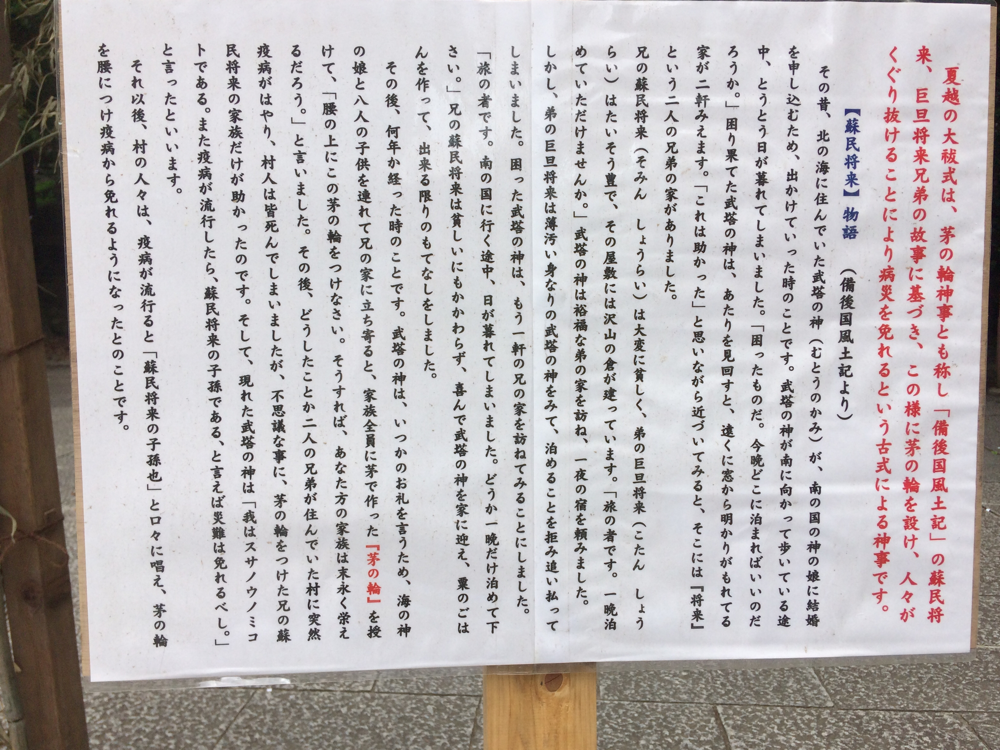 夏越の大祓式は、茅の輪神事とも称し「備後国風土記」の蘇民将
来、巨旦将来兄弟の故事に基づき、この様に茅の輪を設け、人々が
くぐり抜けることにより病災を免れるという古式による神事です。
【蘇民将来】物語　（備後国風土記より）
その昔、北の海に住んでいた武塔の神（むとうのかみ）が、南の国の神の娘に結婚
を申し込むため、出かけていった時のことです。武塔の神が南に向かって歩いている途
中、とうとう日が暮れてしまいました。「困ったものだ。今晩どこに泊まればいいのだ
ろうか。」困り果てた武塔の神は、あたりを見回すと、遠くに窓から明かりがもれてる
家が二軒みえます。「これは助かった」と思いながら近づいてみると、そこには『将来』
という二人の兄弟の家がありました。
兄の蘇民将来（そみん　しょうらい）は大変に貧しく、弟の巨旦将来（こたん　しょう
らい）はたいそう豊で、その屋敷には沢山の倉が建っています。「旅の者です。一晩泊
めていただけませんか。」武塔の神は裕福な弟の家を訪ね、一夜の宿を頼みました。
しかし、弟の巨旦将来は薄汚い身なりの武塔の神をみて、泊めることを拒み追い払って
しまいました。困った武塔の神は、もう一軒の兄の家を訪ねてみることにしました。
「旅の者です。南の国に行く途中、日が暮れてしまいました。どうか一晩だけ泊めて下
さい。」兄の蘇民将来は貧しいにもかかわらず、喜んで武塔の神を家に迎え、粟のごは
んを作って、出来る限りのもてなしをしました。
その後、何年か経った時のことです。武塔の神は、いつかのお礼を言うため、海の神
の娘と八人の子供を連れて兄の家に立ち寄ると、家族全員に茅で作った『茅の輪』を授
けて、「腰の上にこの茅の輪をつけなさい。そうすれば、あなた方の家族は末永く栄え
るだろう。」と言いました。その後、どうしたことか二人の兄弟が住んでいた村に突然
疫病がはやり、村人は皆死んでしまいましたが、不思議な事に、茅の輪をつけた兄の蘇
民将来の家族だけが助かったのです。そして、現れた武塔の神は「我はスサノウノミコ
トである。また疫病が流行したら、蘇民将来の子孫である、と言えば災難は免れるべし。」
と言ったといいます。
それ以後、村の人々は、疫病が流行ると「蘇民将来の子孫也」と口々に唱え、茅の輪
を腰につけ疫病から免れるようになったとのことです。